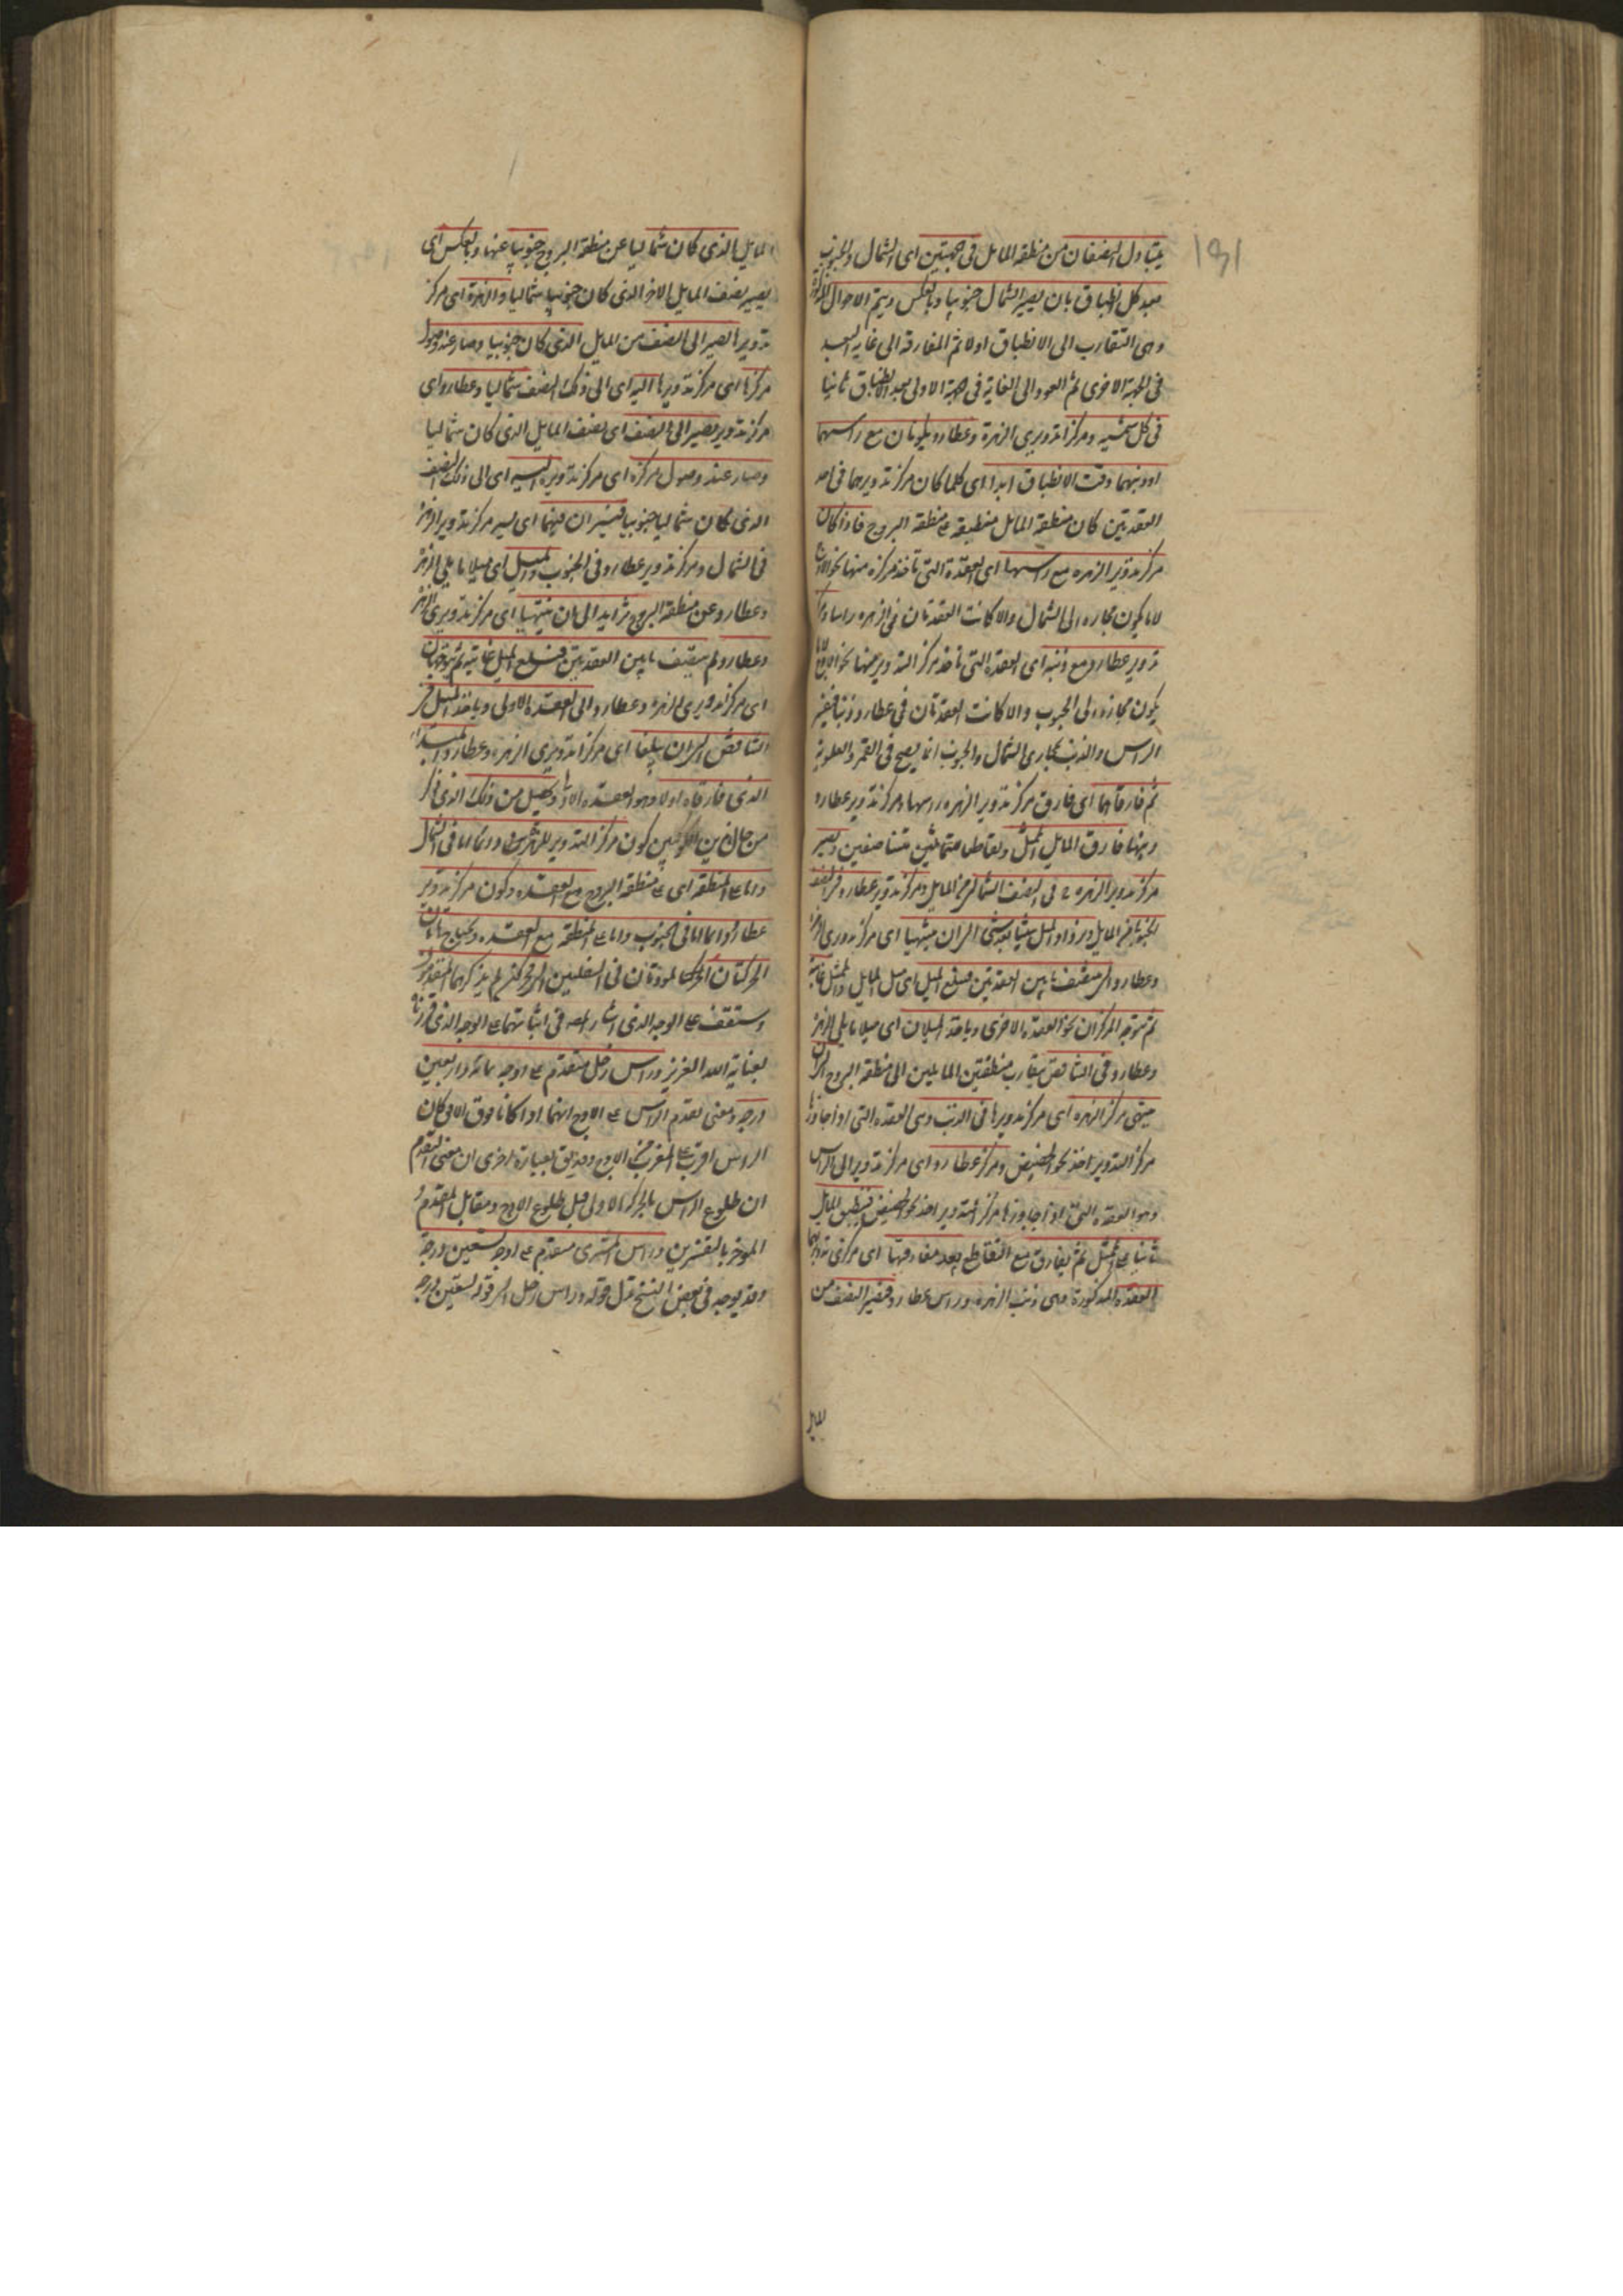 ١٥١
يتبادل النصفان من منطقة المايل فى جهتين اى الشمال والجنوب
بعد كل انطباق بان يصير الشمال جنوبيا وبالعكس ويتم الاحوال
وهى التقارب الى الانطباق اولا ثم المفارقة الى غاية البعد
فى الجهة الاخرى ثم العود الى الغاية فى جهة الاولى بعد الانطباق ثانيا
فى كل سنة ومركزا تدويرى الزهرة وعطارد يكونان مع راسيهما
او ذنبيهما وقت الانطباق ابدا اى كلما كان مركز تدويرهما فى احد
العقدتين كان منطقة المايل منطبقة على منطقة البروج فاذا كان
مركز تدوير الزهره مع راسها اى العقدة التى تاخذ مركزه منها نحو الاوج
لا ما يكون مجازه الى الشمال والا كانت العقدتان فى الزهره راسا
تدوير عطارد مع ذنبه اى العقدة التى تاخذ مركز التدوير منها نحو الاوج لا ما
يكون مجازه الى الجنوب والا كانت العقدتان فى عطارد ذنبا
الراس والذنب بمجازى الشمال والجنوب انما يصح فى القمر والعلوية
ثم فارقاهما اى فارق مركز تدوير الزهره راسها ومركز تدوير عطارد
ذنبها فارق المايل الممثل وتقاطعا متناصفين ويصير
مركز تدوير الزهره فى النصف الشمالى من المايل ومركز تدوير عطارد فى النصف
الجنوبى من المايل ويزداد الميل شيئا بعد شئ الى ان ينتهيا اى مركز تدويرى
وعطارد الى منتصف ما بين العقدتين فيبلغ الميل اى ميل المايل والممثل غايته
ثم يتوجه المركزان نحو العقده الاخرى وياخذ الميلان اى ميلا مايلى الزهره
وعطارد فى التناقص بتقارب منطقتين المايلين الى منطقة البروج الى ان
ينتهى مركز الزهره اى مركز تدويرها الى الذنب وهى العقده التى اذا جاوزها
مركز التدوير اخذ نحو الحضيض ومركز عطارد اى مركز تدويره الى الراس
وهو العقده التى اذا جاوزها مركز التدوير اخذ نحو الحضيض فينطبق المايل
ثانيا على الممثل ثم يفارق مع التقاطع بعد مفارقتها اى مركزى تدويريهما
العقده المذكورة وهى ذنب الزهره وراس عطارد فيصير النصف من
المايل
المايل الذى كان شماليا عن منطقة البروج جنوبيا عنها وبالعكس اى
يصير نصف المايل الاخر الذى كان جنوبيا شماليا والزهرة اى مركز
تدويرها تصير الى النصف من المايل الذى كان جنوبيا وصار عند وصول
مركزها اى مركز تدويرها اليه اى الى ذلك النصف شماليا وعطارد اى
مركز تدويره يصير الى النصف اى نصف المايل الذى كان شماليا
وصار عند وصول مركزه اى مركز تدويره اليه اى الى ذلك النصف
الذى كان شماليا جنوبيا فيسيران فيهما اى يسير مركز تدوير الزهره
فى الشمال ومركز تدوير عطارد فى الجنوب والميل اى ميلا مايلى الزهره
وعطارد عن منطقة البروج متزايد الى ان ينتهيا اى مركز تدويرى الزهره
وعطارد الى منتصف ما بين العقدتين فيبلغ الميل غايته ثم يتوجهان
اى مركز تدويرى الزهرة وعطارد الى العقدة الاولى وياخذ الميل فى
التناقص الى ان يبلغا اى مركزا تدويرى الزهره وعطارد المبدا
الذى فارقاه اولا وهو العقده الاولى ويحصل من ذلك الذى ذكر
من حال هذين الكوكبين كون مركز التدوير للزهرة دائما اما فى الشمال
واما على المنطقة اى على منطقة البروج مع العقده وكون مركز تدوير
عطارد دائما اما فى الجنوب واما على المنطقة مع العقده وتحتاج هاتان
الحركتان فى السفليين الى محركين لم يذكرهما المتقدمون
وستقف على الوجه الذى اشار المصنف فى اثباتهما على الوجه الذى قررناه
بعناية الله العزيز وراس زحل متقدم على اوجه بمائة واربعين
درجة ومعنى تقدم الراس على الاوج انهما اذا كانا فوق الافق كان
الراس اقرب الى المغرب من الاوج وقد يق بعبارة اخرى ان معنى التقدم
ان طلوع الراس بالحركة الاولى قبل طلوع الاوج ومقابل المتقدم
الموخر بالتفسيرين وراس المشترى متقدم على اوجه بسبعين درجة
وقد يوجد فى بعض النسخ مثل قوله وراس زحل الى قوله بسبعين درجه